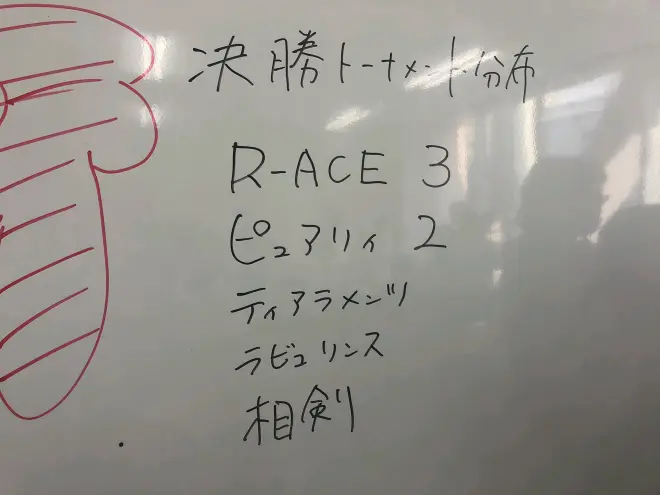 決勝トーナメント分布
R-ACE 3
ピュアリィ 2
ティアラメンツ
ラビュリンス
相剣